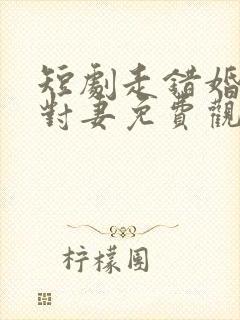 短劇走錯婚
對妻免費觀
柠檬園